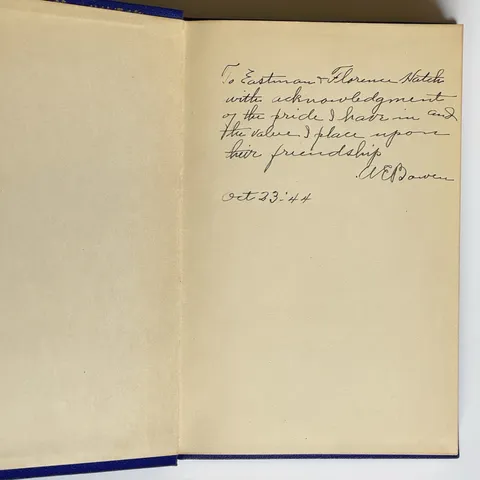 To Eastman & Florence Hatch
with acknowledgment
of the pride I have in and
the value I place upon
their friendship
Oct 23-'44